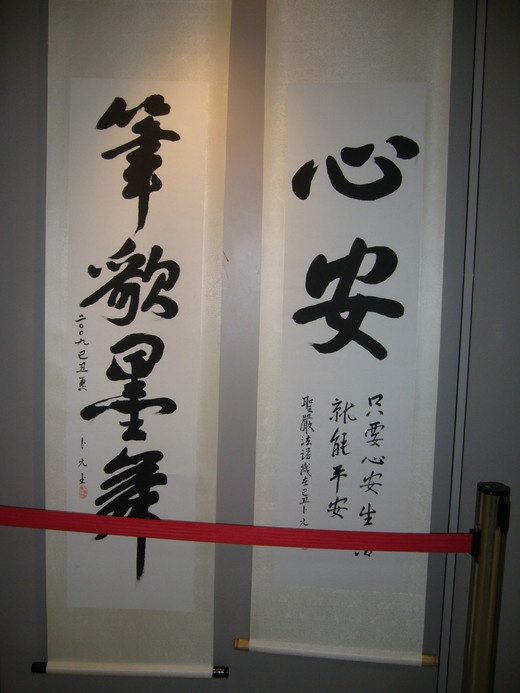 心安
只要心安生活
就能平安
聖嚴法語歲在己丑卜
筆歌墨舞
二〇〇九己丑夏
卜